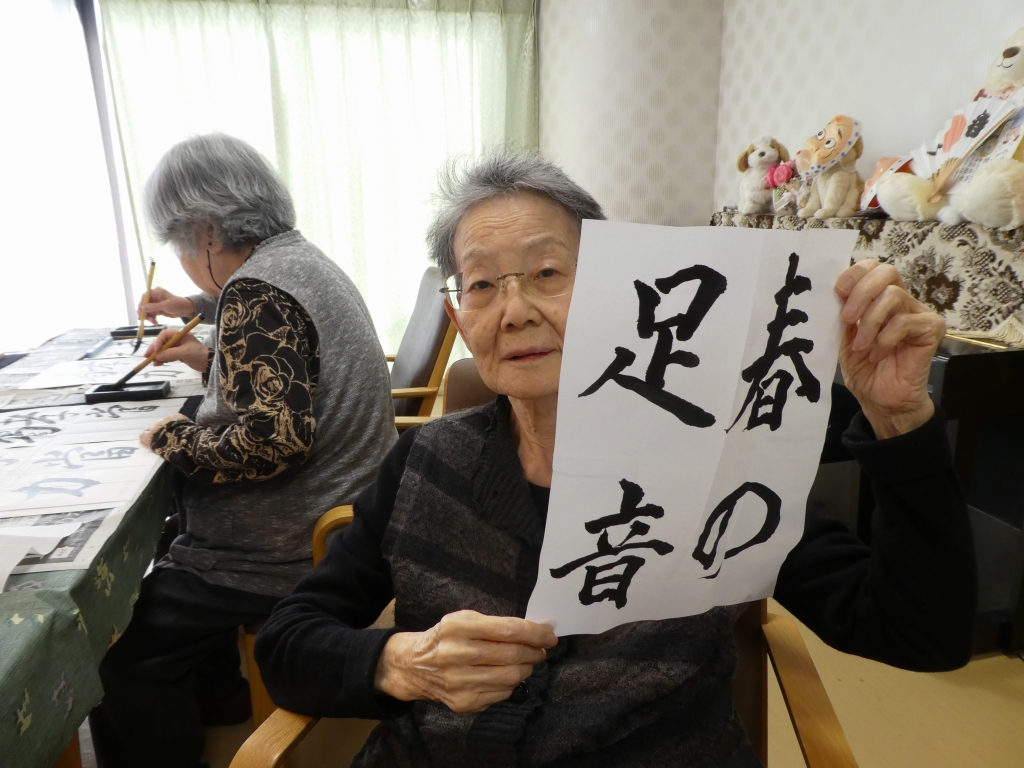 春の
足音